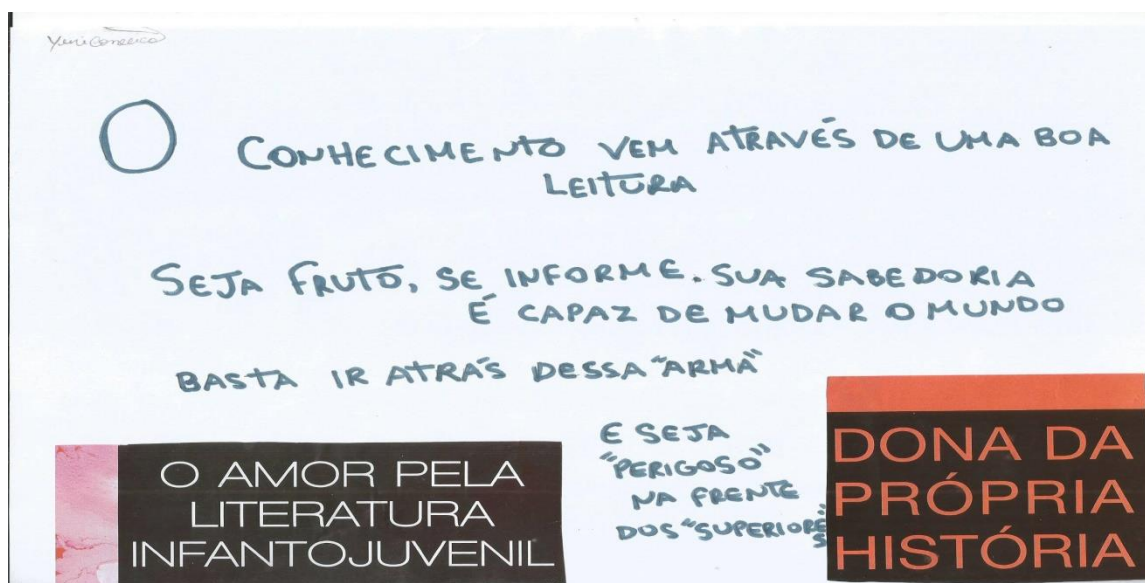 O CONHECIMENTO VEM ATRAVÉS DE UMA BOA
LEITURA
SEJA FRUTO, SE INFORME. SUA SABEDORIA
É CAPAZ DE MUDAR O MUNDO
BASTA IR ATRÁS DESSA "ARMA"
E SEJA
"PERIGOSO"
NA FRENTE
DOS "SUPERIORES"
O AMOR PELA
LITERATURA
INFANTOJUVENIL
DONA DA
PRÓPRIA
HISTÓRIA